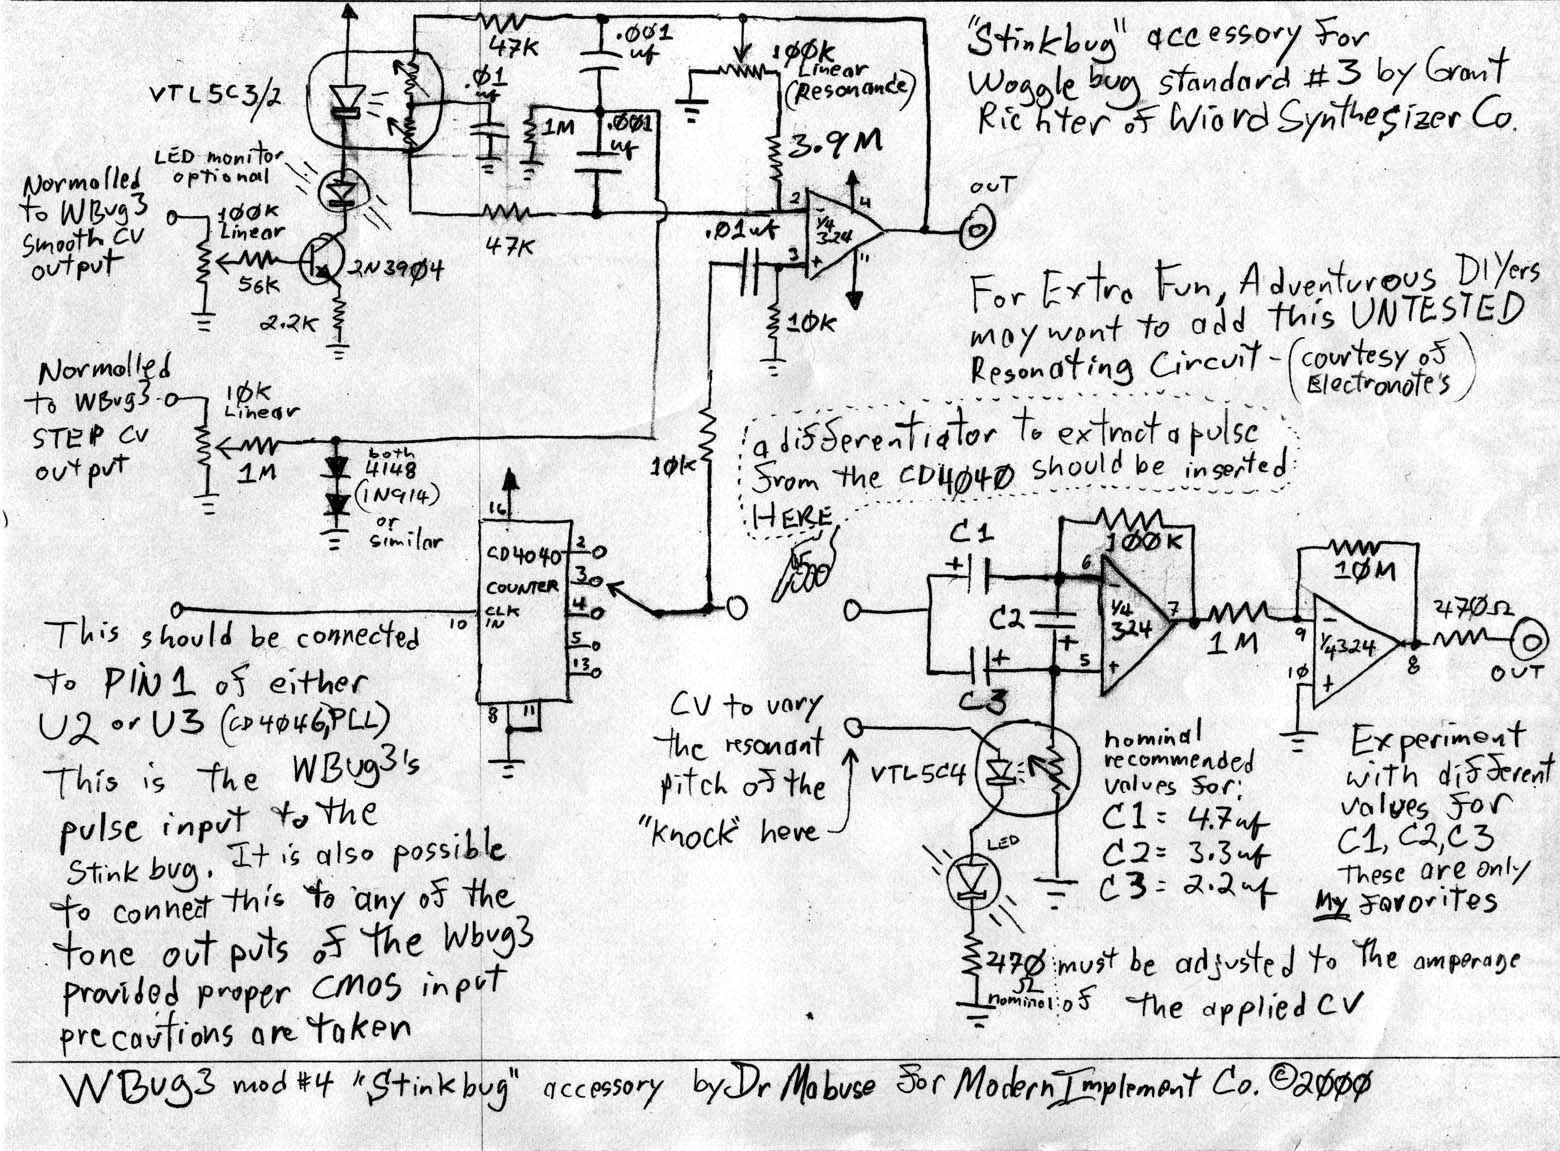 "Stinkbug" accessory for
Wogglebug standard #3 by Grant
Richter of Wiard Synthesizer Co.
47K
.001
uf
100K
Linear
(Resonance)
VTL5C3/2
.01
uf
1M
.001
uf
3.9M
LED monitor
optional
Normalled
to WBug3
Smooth CV
output
100K
Linear
56K
2N3904
2.2K
47K
.01uf
2
3
1/4
324
4
11
OUT
10K
For Extra Fun, Adventurous DIYers
may want to add this UNTESTED
Resonating Circuit - (courtesy of
Electronotes)
Normalled
to WBug3
STEP CV
output
10K
Linear
1M
both
4148
(1N914)
or
similar
10K
a differentiator to extract a pulse
from the CD4040 should be inserted
HERE
16
CD4040
COUNTER
CLK
IN
10
2
3
4
5
13
8
11
C1
C2
C3
100K
6
5
1/4
324
7
1M
10M
9
10
1/4 324
8
470Ω
OUT
This should be connected
to PIN 1 of either
U2 or U3 (CD4046, PLL)
This is the WBug3's
pulse input to the
Stinkbug. It is also possible
to connect this to any of the
tone outputs of the Wbug3
provided proper CMOS input
precautions are taken
CV to vary
the resonant
pitch of the
"knock" here
VTL5C4
LED
nominal
recommended
values for:
C1 = 4.7uf
C2 = 3.3uf
C3 = 2.2uf
Experiment
with different
values for
C1, C2, C3
These are only
My favorites
470 must be adjusted to the amperage
Ω
nominal of the applied CV
WBug3 mod #4 "Stinkbug" accessory by Dr Mabuse for Modern Implement Co. ©2000